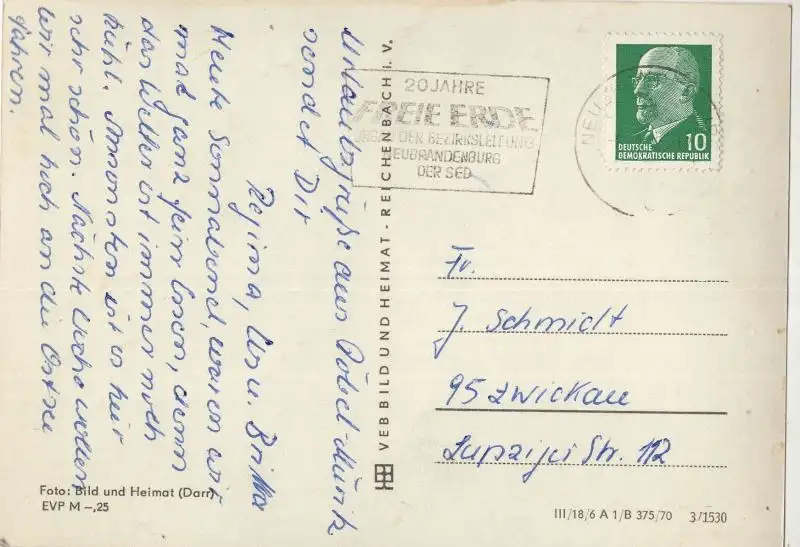 Urlaubsgrüße aus Röbel-Müritz
sendet Dir
Regina, Uwe u. Britta
Heute Sonnabend, waren wir
mal ganz fein Essen, denn
das Wetter ist immer noch
kühl. Ansonsten ist es hier
sehr schön. Nächste Woche wollen
wir mal hoch an die Ostsee
fahren.
Foto: Bild und Heimat (Darr)
EVP M -,25
VEB BILD UND HEIMAT - REICHENBACH i. V.
20 JAHRE
FREIE ERDE
ORGAN DER BEZIRKSLEITUNG
NEUBRANDENBURG
DER SED
10
DEUTSCHE
DEMOKRATISCHE REPUBLIK
Fr.
J. Schmidt
95 Zwickau
Leipziger Str. 112
III/18/6 A 1/B 375/70 3/1530